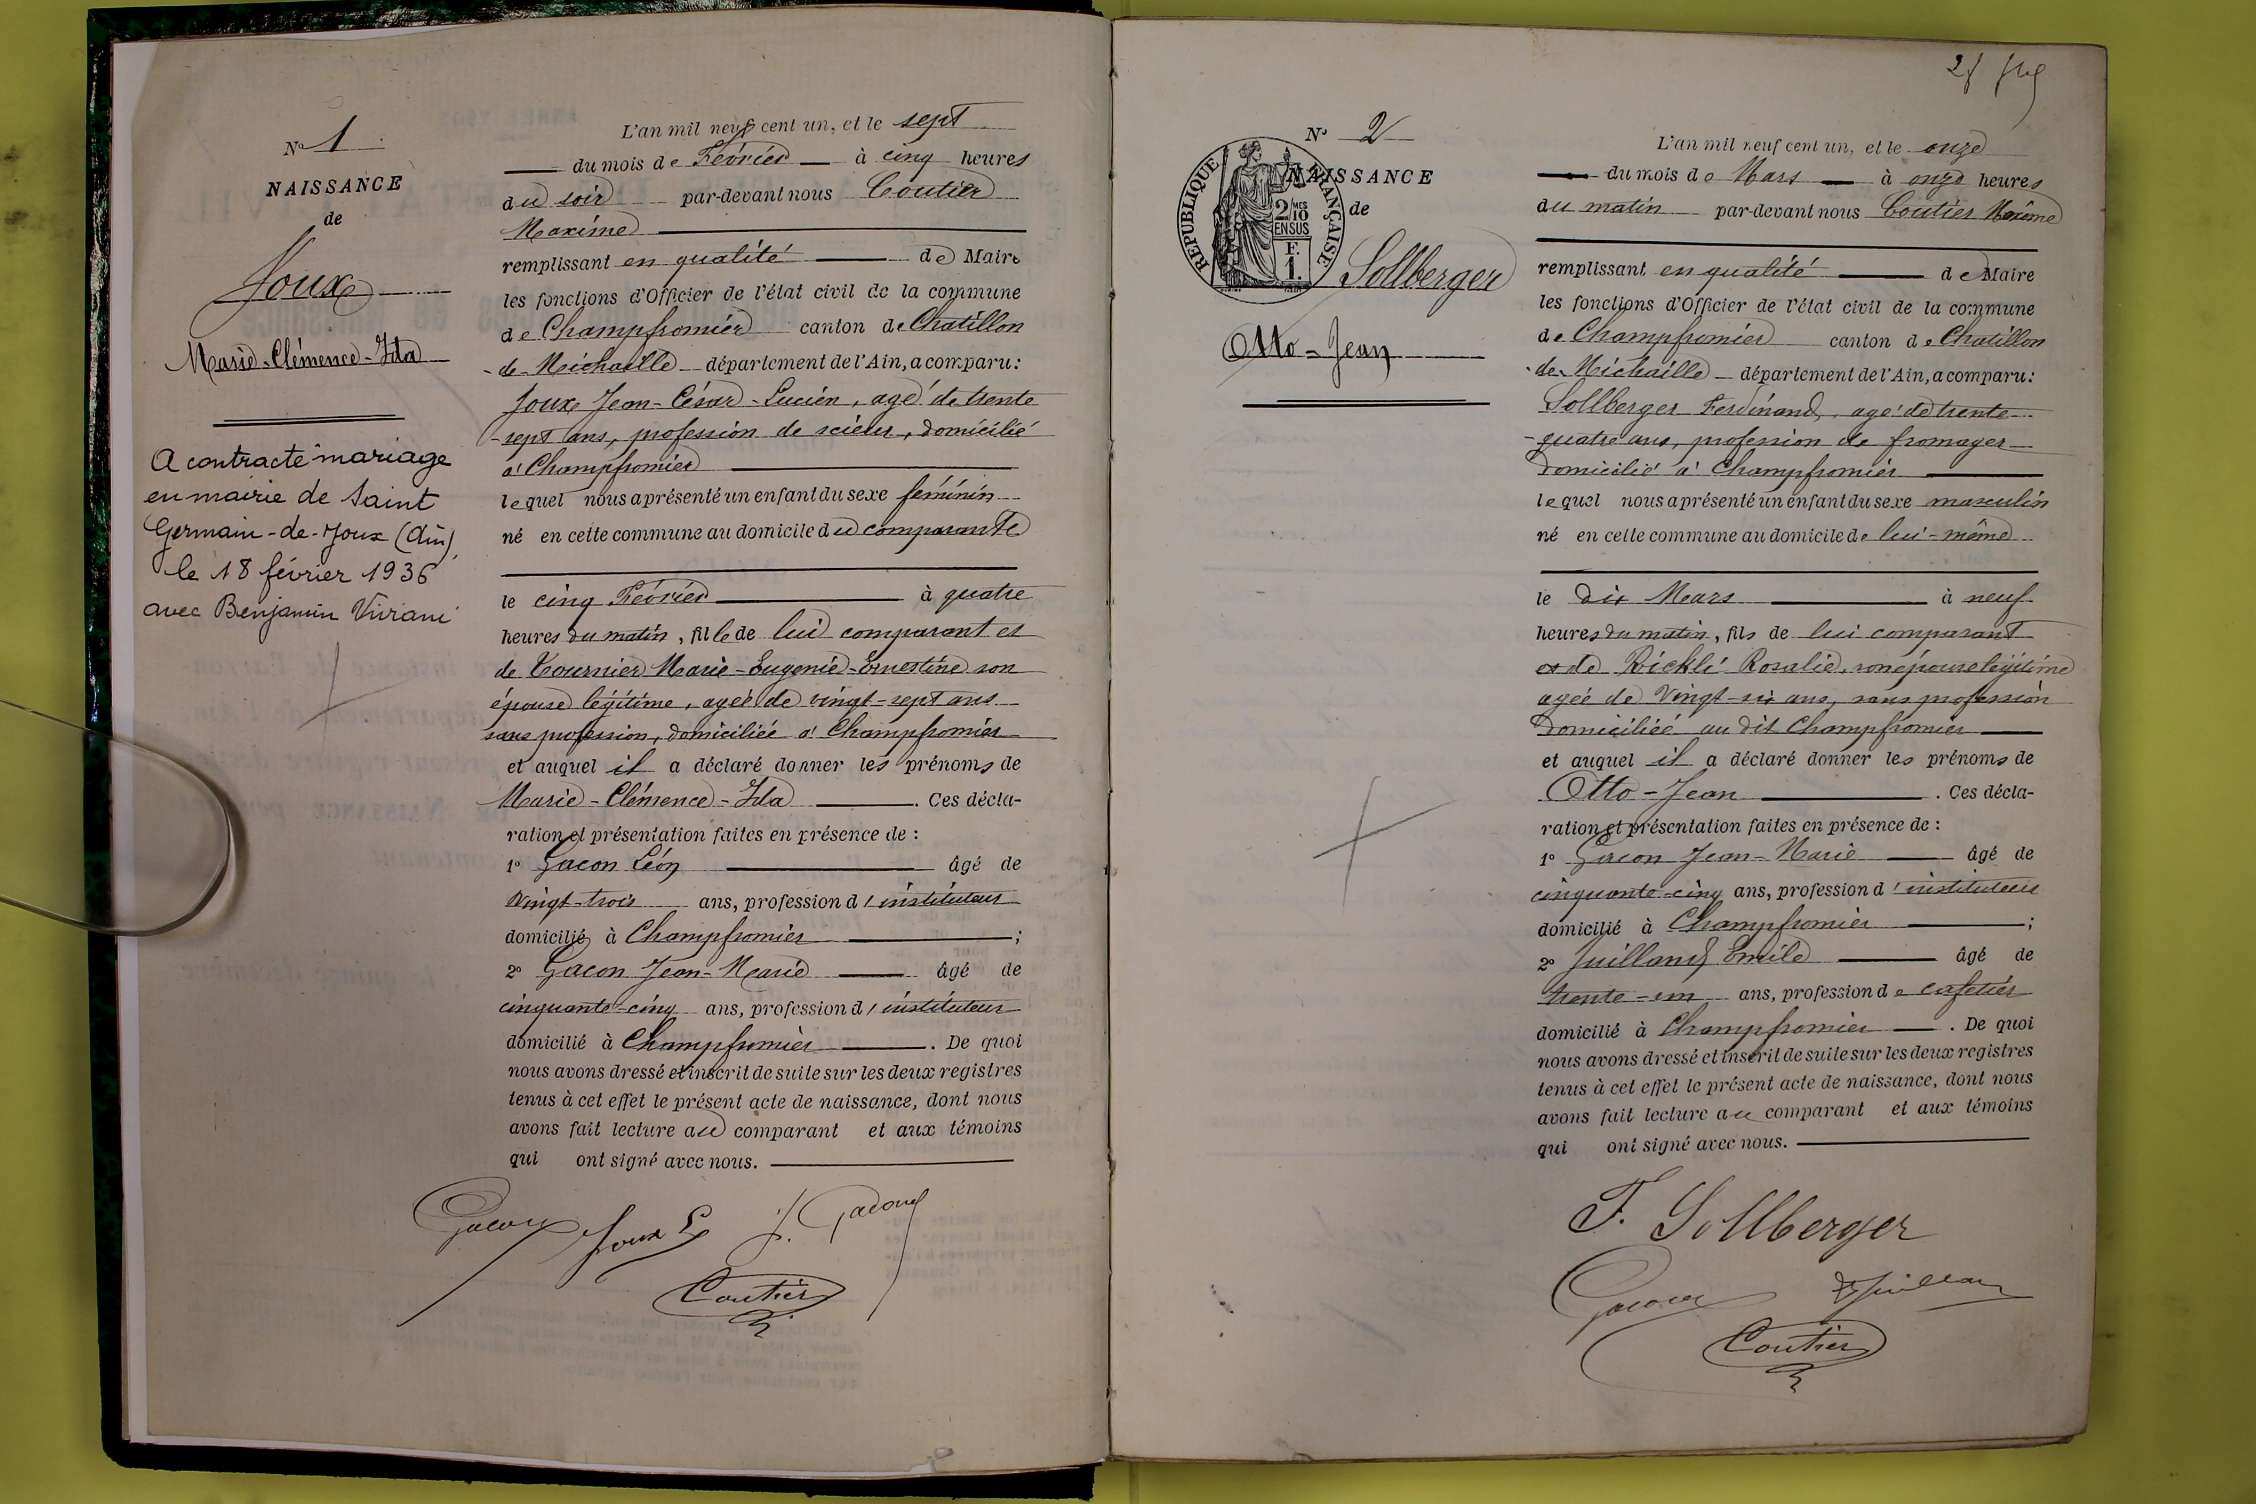 No 1
NAISSANCE
de
Joux
Marie-Clémence-Ida
A contracté mariage
en mairie de Saint
Germain-de-Joux (Ain)
le 18 février 1936
avec Benjamin Viviani
L'an mil neuf cent un, et le sept
du mois de Février à cinq heures
du soir par-devant nous Coutier
Maxime
remplissant en qualité de Maire
les fonctions d'Officier de l'état civil de la commune
de Champfromier canton de Chatillon
de Michaille département de l'Ain, a comparu:
Joux Jean-César-Lucien, agé de trente
-sept ans, profession de scieur, domicilié
à Champfromier
lequel nous a présenté un enfant du sexe féminin
né en cette commune au domicile du comparant
le cinq Février à quatre
heures du matin, fille de lui comparant et
de Tournier Marie-Eugenie-Ernestine son
épouse légitime, agée de vingt-sept ans
sans profession, domiciliée à Champfromier
et auquel il a déclaré donner les prénoms de
Marie-Clémence-Ida. Ces décla-
ration et présentation faites en présence de :
1° Gacon Léon âgé de
vingt-trois ans, profession d'instituteur
domicilié à Champfromier ;
2° Gacon Jean-Marie âgé de
cinquante-cinq ans, profession d'instituteur
domicilié à Champfromier. De quoi
nous avons dressé et inscrit de suite sur les deux registres
tenus à cet effet le présent acte de naissance, dont nous
avons fait lecture au comparant et aux témoins
qui ont signé avec nous.
Gacon Joux L J. Gacon
Coutier
No 2
NAISSANCE
de
REPUBLIQUE FRANÇAISE
2/10 MES
EN SUS
F.
1.
Sollberger
Otto-Jean
L'an mil neuf cent un, et le onze
du mois de Mars à onze heures
du matin par-devant nous Coutier Maxime
remplissant en qualité de Maire
les fonctions d'Officier de l'état civil de la commune
de Champfromier canton de Chatillon
de Michaille département de l'Ain, a comparu:
Sollberger Ferdinand, agé de trente
-quatre ans, profession de fromager
domicilié à Champfromier
lequel nous a présenté un enfant du sexe masculin
né en cette commune au domicile de lui-même
le dix Mars à neuf
heures du matin, fils de lui comparant
et de Rickli Rosalie, son épouse légitime
agée de vingt-six ans, sans profession
domiciliée au dit Champfromier
et auquel il a déclaré donner les prénoms de
Otto-Jean. Ces décla-
ration et présentation faites en présence de :
1° Gacon Jean-Marie âgé de
cinquante-cinq ans, profession d'instituteur
domicilié à Champfromier ;
2° Juilland Emile âgé de
trente-un ans, profession de cafetier
domicilié à Champfromier. De quoi
nous avons dressé et inscrit de suite sur les deux registres
tenus à cet effet le présent acte de naissance, dont nous
avons fait lecture au comparant et aux témoins
qui ont signé avec nous.
F. Sollberger
Gacon
Coutier